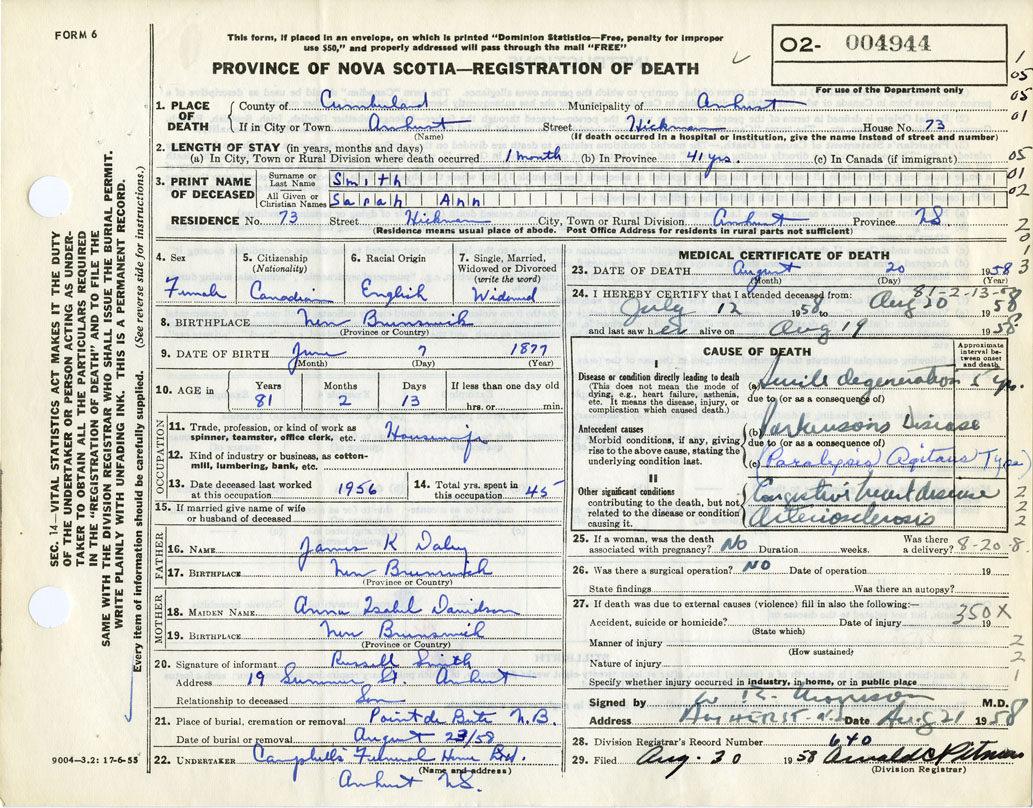 FORM 6
This form, if placed in an envelope, on which is printed "Dominion Statistics—Free, penalty for improper
use $50," and properly addressed will pass through the mail "FREE"
O2- 004944
PROVINCE OF NOVA SCOTIA—REGISTRATION OF DEATH
For use of the Department only
1. PLACE OF DEATH County of Cumberland Municipality of Amherst
If in City or Town Amherst Street Hickman House No. 73
(Name) (If death occurred in a hospital or institution, give the name instead of street and number)
2. LENGTH OF STAY (in years, months and days)
(a) In City, Town or Rural Division where death occurred 1 month (b) In Province 41 yrs. (c) In Canada (if immigrant)
3. PRINT NAME OF DECEASED Surname or Last Name Smith
All Given or Christian Names Sarah Ann
RESIDENCE No. 73 Street Hickman City, Town or Rural Division Amherst Province N.S.
(Residence means usual place of abode. Post Office Address for residents in rural parts not sufficient)
4. Sex Female
5. Citizenship (Nationality) Canadian
6. Racial Origin English
7. Single, Married, Widowed or Divorced (write the word) Widowed
8. BIRTHPLACE New Brunswick
(Province or Country)
9. DATE OF BIRTH June 7 1877
(Month) (Day) (Year)
10. AGE in Years 81 Months 2 Days 13 If less than one day old hrs. or min.
OCCUPATION
11. Trade, profession, or kind of work as spinner, teamster, office clerk, etc. Housewife
12. Kind of industry or business, as cotton-mill, lumbering, bank, etc.
13. Date deceased last worked at this occupation 1956
14. Total yrs. spent in this occupation 45
15. If married give name of wife or husband of deceased
FATHER
16. NAME James K Daley
17. BIRTHPLACE New Brunswick
(Province or Country)
MOTHER
18. MAIDEN NAME Anna Isabel Davidson
19. BIRTHPLACE New Brunswick
(Province or Country)
20. Signature of informant Russell Smith
Address 19 Summer St. Amherst
Relationship to deceased Son
21. Place of burial, cremation or removal Point de Bute N.B.
Date of burial or removal August 23/58
22. UNDERTAKER Campbell's Funeral Home
(Name and address)
Amherst N.S.
MEDICAL CERTIFICATE OF DEATH
23. DATE OF DEATH August 20 1958
(Month) (Day) (Year)
81-2-13-58
24. I HEREBY CERTIFY that I attended deceased from:
July 12 1958 Aug 20 1958
and last saw her alive on Aug 19 1958
CAUSE OF DEATH
Approximate interval between onset and death
I
Disease or condition directly leading to death
(This does not mean the mode of dying, e.g., heart failure, asthenia, etc. It means the disease, injury, or complication which caused death.)
(a) Senile degeneration 5 yrs.
due to (or as a consequence of)
Antecedent causes
Morbid conditions, if any, giving rise to the above cause, stating the underlying condition last.
(b) Parkinsons Disease
due to (or as a consequence of)
(c) (Paralysis Agitans Type)
II
Other significant conditions
contributing to the death, but not related to the disease or condition causing it.
Congestive heart disease
Arteriosclerosis
25. If a woman, was the death associated with pregnancy? No Duration weeks. Was there a delivery? 8-20-8
26. Was there a surgical operation? NO Date of operation 19
State findings Was there an autopsy?
27. If death was due to external causes (violence) fill in also the following:—
350X
Accident, suicide or homicide? Date of injury 19
(State which)
Manner of injury
(How sustained)
Nature of injury
Specify whether injury occurred in industry, in home, or in public place
Signed by M.D.
Address AMHERST N.S. Date Aug 21 1958
28. Division Registrar's Record Number 640
29. Filed Aug. 30 1958
(Division Registrar)
1
05
05
01
05
01
02
2
0
1
3
2
2
2
2
2
1
SEC. 14—VITAL STATISTICS ACT MAKES IT THE DUTY
OF THE UNDERTAKER OR PERSON ACTING AS UNDER-
TAKER TO OBTAIN ALL THE PARTICULARS REQUIRED
IN THE "REGISTRATION OF DEATH" AND TO FILE THE
SAME WITH THE DIVISION REGISTRAR WHO SHALL ISSUE THE BURIAL PERMIT.
WRITE PLAINLY WITH UNFADING INK. THIS IS A PERMANENT RECORD.
Every item of information should be carefully supplied. (See reverse side for instructions.)
9004—3.2: 17-6-55